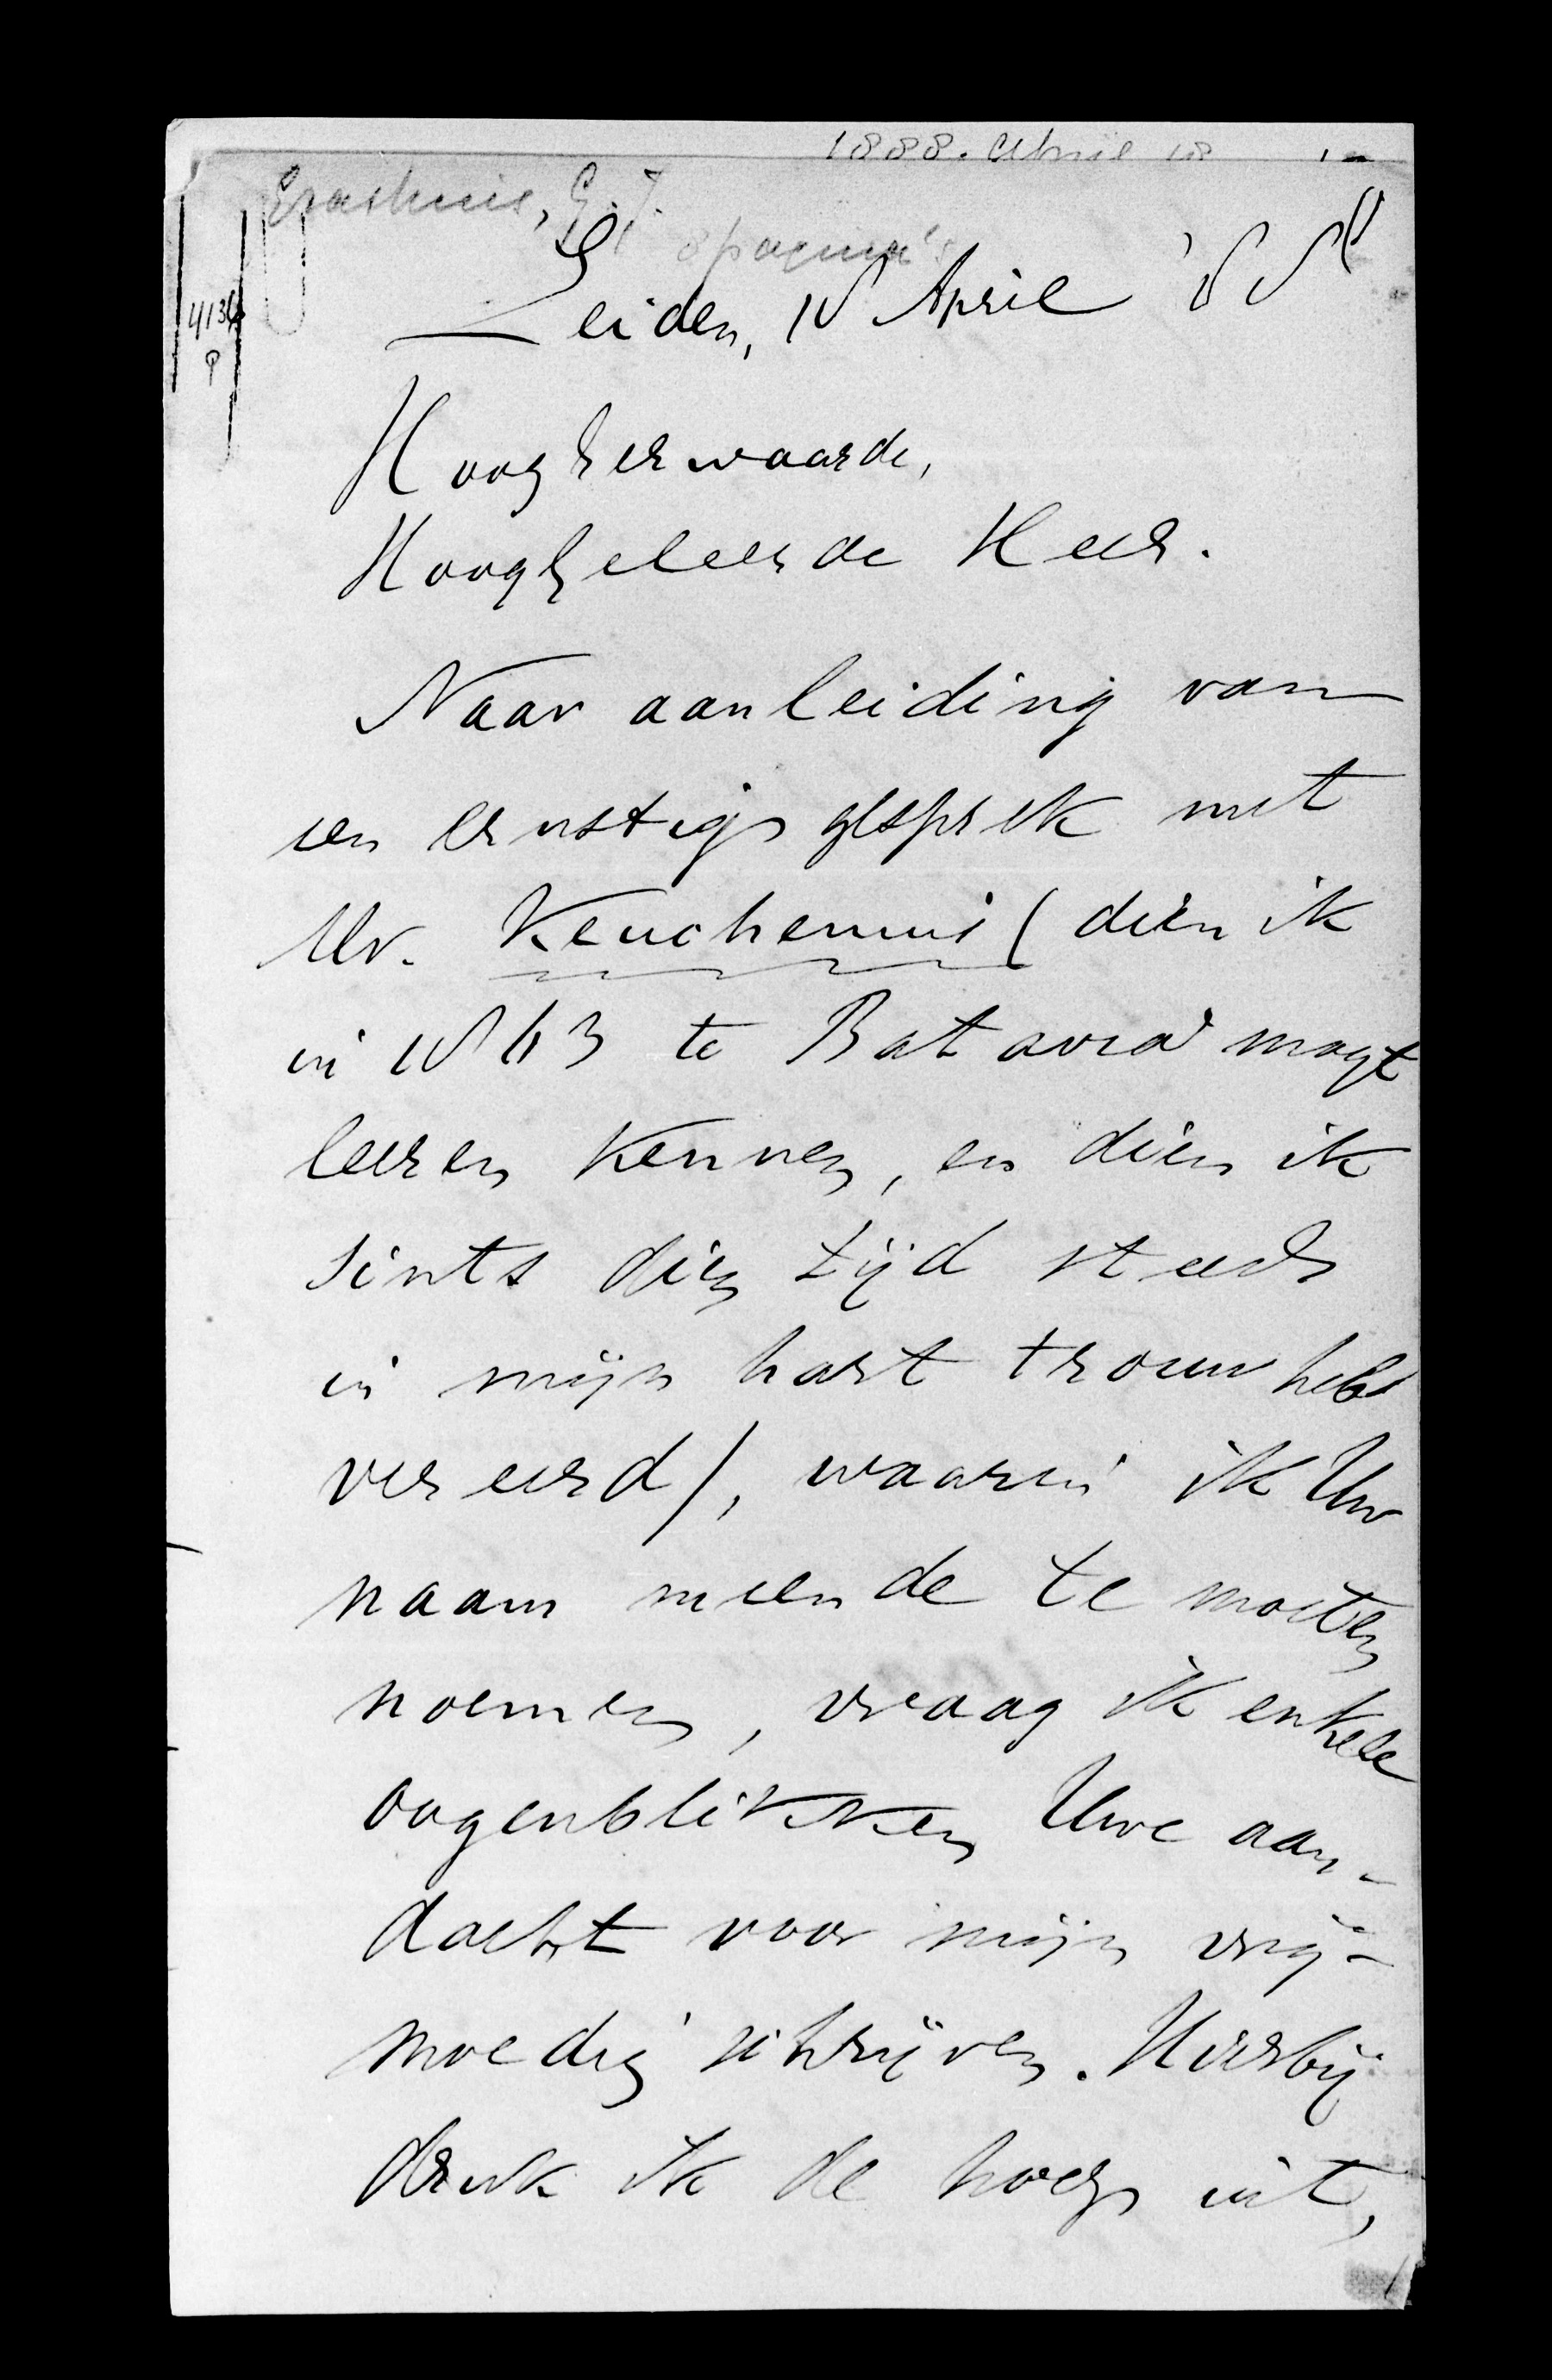 1888. April 18
Grashuis, G. J.
8 pagina's
4134
Leiden, 18 April '88
Hoogheerwaarde,
Hooggeleerde Heer.
Naar aanleiding van
een ernstig gesprek met
Mr. Keuchenius (dien ik
in 1863 te Batavia mogt
leeren kennen, en dien ik
sints dien tijd steeds
in mijn hart trouw heb
vereerd), waarin ik Uw
naam meende te moeten
noemen, vraag ik enkele
oogenblikken Uwe aan-
dacht voor mijn vrij-
moedig schrijven. Hierbij
druk ik de hoop uit,